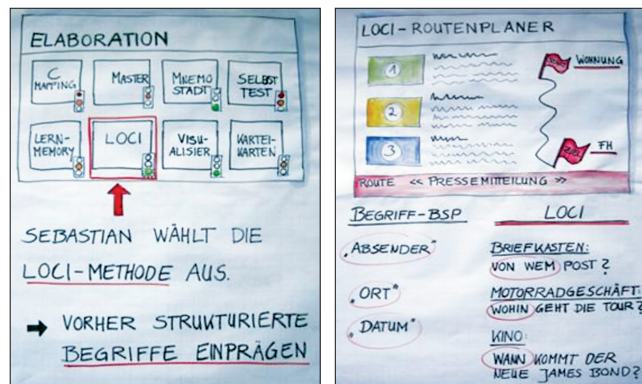 ELABORATION
C MAPPING
MASTER
MNEMO STADT
SELBST TEST
LERN-MEMORY
LOCI
VISU-ALISIER
KARTEI-KARTEN
SEBASTIAN WÄHLT DIE
LOCI-METHODE AUS.
→ VORHER STRUKTURIERTE
BEGRIFFE EINPRÄGEN
LOCI-ROUTENPLANER
1
2
3
WOHNUNG
FH
ROUTE << PRESSEMITTEILUNG >>
BEGRIFF-BSP
LOCI
„ABSENDER"
BRIEFKASTEN:
VON WEM POST?
„ORT"
MOTORRADGESCHÄFT:
WOHIN GEHT DIE TOUR?
„DATUM"
KINO:
WANN KOMMT DER
NEUE JAMES BOND?